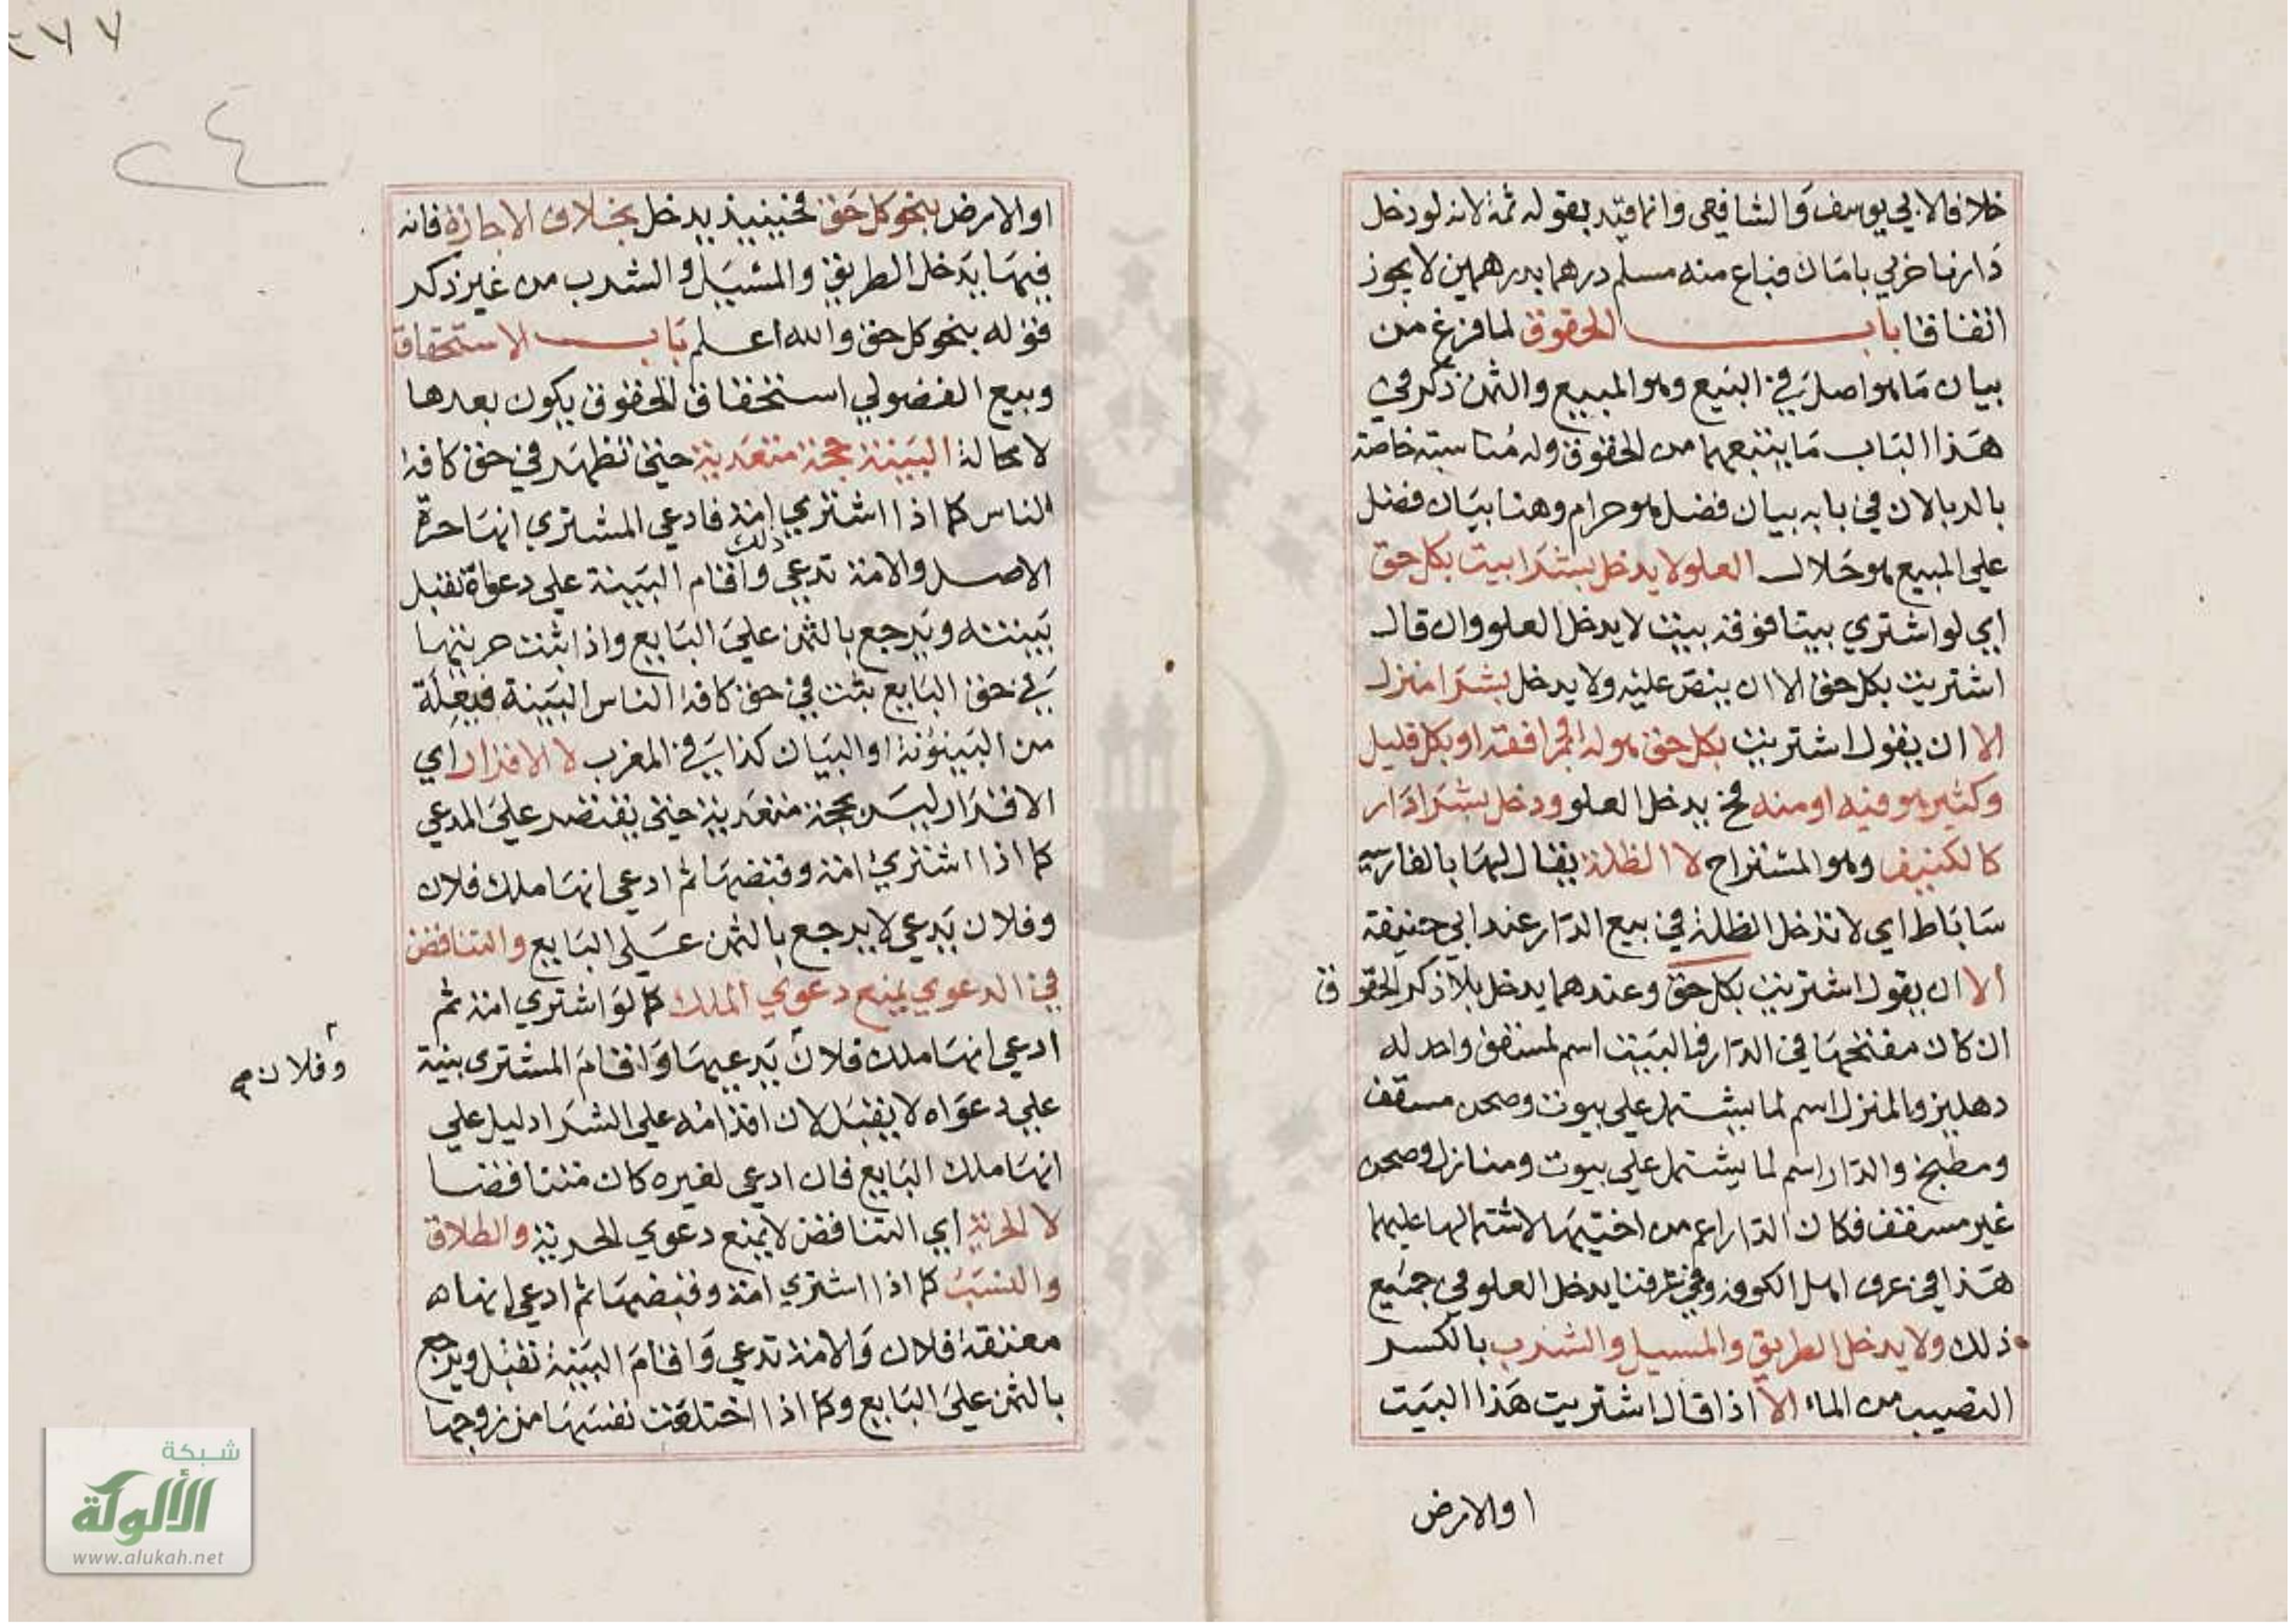 خلافا لابي يوسف والشافعي وانما قيد بقوله ثمة لانه لو دخل
دارنا حربي بامان فباع منه مسلم درهما بدرهمين لا يجوز
اتفاقا باب الحقوق لما فرغ من
بيان ما هو اصل في البيع وهو المبيع والثمن ذكر في
هذا الباب ما يتبعهما من الحقوق وله مناسبة خاصة
بالربا لان في بابه بيان فضل هو حرام وهنا بيان فضل
علي المبيع هو حلال العلو لا يدخل بشرا بيت بكل حق
اي لو اشتري بيتا فوقه بيت لا يدخل العلو وان قال
اشتريت بكل حق الا ان ينص عليه ولا يدخل بشرا منزل
الا ان يقول اشتريت بكل حق هو له او بمرافقه او بكل قليل
وكثير هو فيه او منه فح يدخل العلو ودخل بشرا دار
كالكنيف وهو المستراح لا الظلة يقال لها بالفارسية
ساباط اي لا تدخل الظلة في بيع الدار عند ابي حنيفة
الا ان يقول اشتريت بكل حق وعندهما يدخل بلا ذكر الحقوق
ان كان مفتحها في الدار فالبيت اسم لمسقف واحد له
دهليز والمنزل اسم لما يشتمل علي بيوت وصحن مسقف
ومطبخ والدار اسم لما يشتمل علي بيوت ومنازل وصحن
غير مسقف فكان الدار اعم من اختيها لاشتمالها عليهما
هذا في عرف اهل الكوفة وفي عرفنا يدخل العلو في جميع
ذلك ولا يدخل الطريق والمسيل والشرب بالكسر
النصيب من الماء الا اذا قال اشتريت هذا البيت
او الارض
٢٧٧
٢٤
او الارض بنحو كل حق فحينيذ يدخل بخلاف الاجازة فانه
فيها يدخل الطريق والمسيل والشرب من غير ذكر
قوله بنحو كل حق والله اعلم باب الاستحقاق
وبيع الفضولي استحقاق الحقوق يكون بعدها
لا محالة البينة حجة متعدية حتي تظهر في حق كافة
الناس كما اذا اشتري امة فادعي المشتري انها حرة
الاصل والامة تدعي ذلك واقام البينة علي دعواه تقبل
بينته ويرجع بالثمن علي البايع واذا ثبت حريتها
في حق البايع ثبت في حق كافة الناس البينة فيعلة
من البينونة او البيان كذا في المغرب لا الاقرار اي
الاقرار ليس بحجة متعدية حتي يقتصر علي المدعي
كما اذا اشتري امة وقبضها ثم ادعي انها ملك فلان
وفلان يدعي لا يرجع بالثمن علي البايع والتناقض
في الدعوي يمنع دعوي الملك كما لو اشتري امة ثم
ادعي انها ملك فلان يدعيها واقام المشتري بينة
وفلان صح
علي دعواه لا يقبل لان اقدامه علي الشرا دليل علي
انها ملك البايع فان ادعي لغيره كان متناقضا
لا الحرية اي التناقض لا يمنع دعوي الحرية والطلاق
والنسب كما اذا اشتري امة وقبضها ثم ادعي انها
معتقة فلان والامة تدعي واقام البينة تقبل ويرجع
بالثمن علي البايع وكما اذا اختلعت نفسها من زوجها
شبكة
الألوكة
www.alukah.net